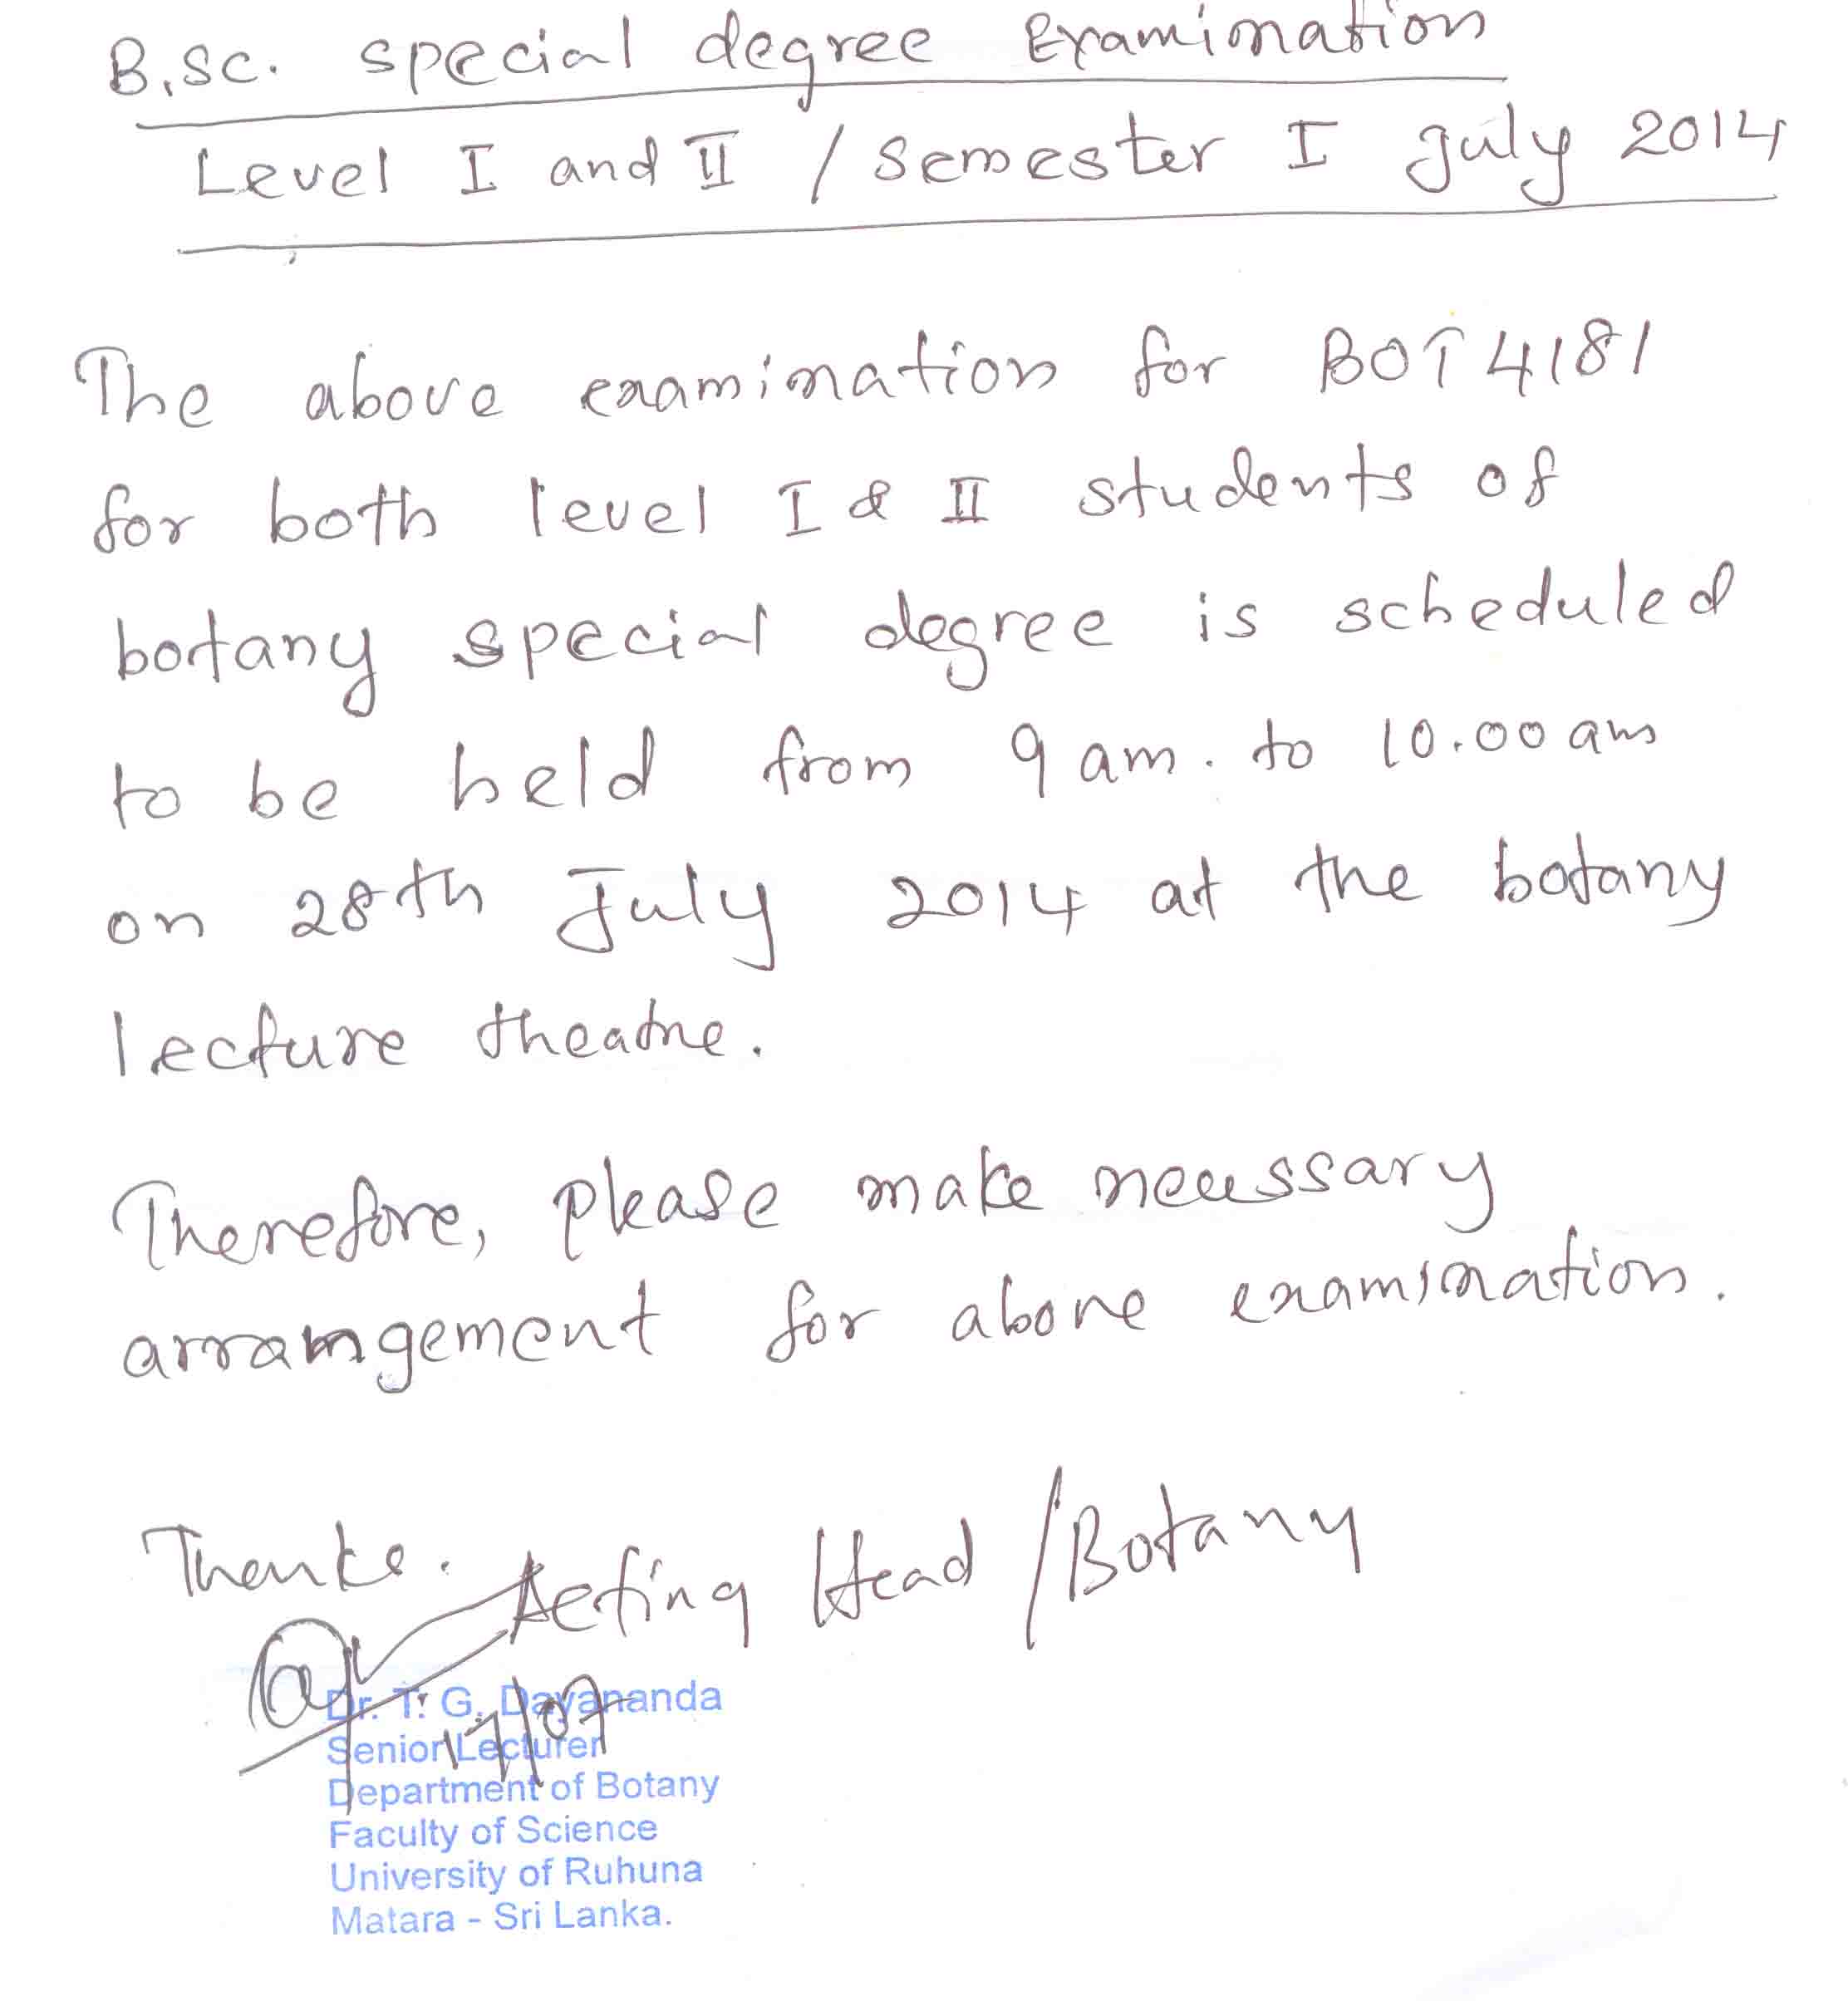 B.Sc. special degree Examination
Level I and II / Semester I July 2014
The above examination for BOT 4181
for both level I & II students of
botany special degree is scheduled
to be held from 9 am. to 10.00 am
on 28th July 2014 at the botany
lecture theatre.
Therefore, please make necessary
arrangement for above examination.
Thanks.
Acting Head / Botany
17/07
Dr. T. G. Dayananda
Senior Lecturer
Department of Botany
Faculty of Science
University of Ruhuna
Matara - Sri Lanka.